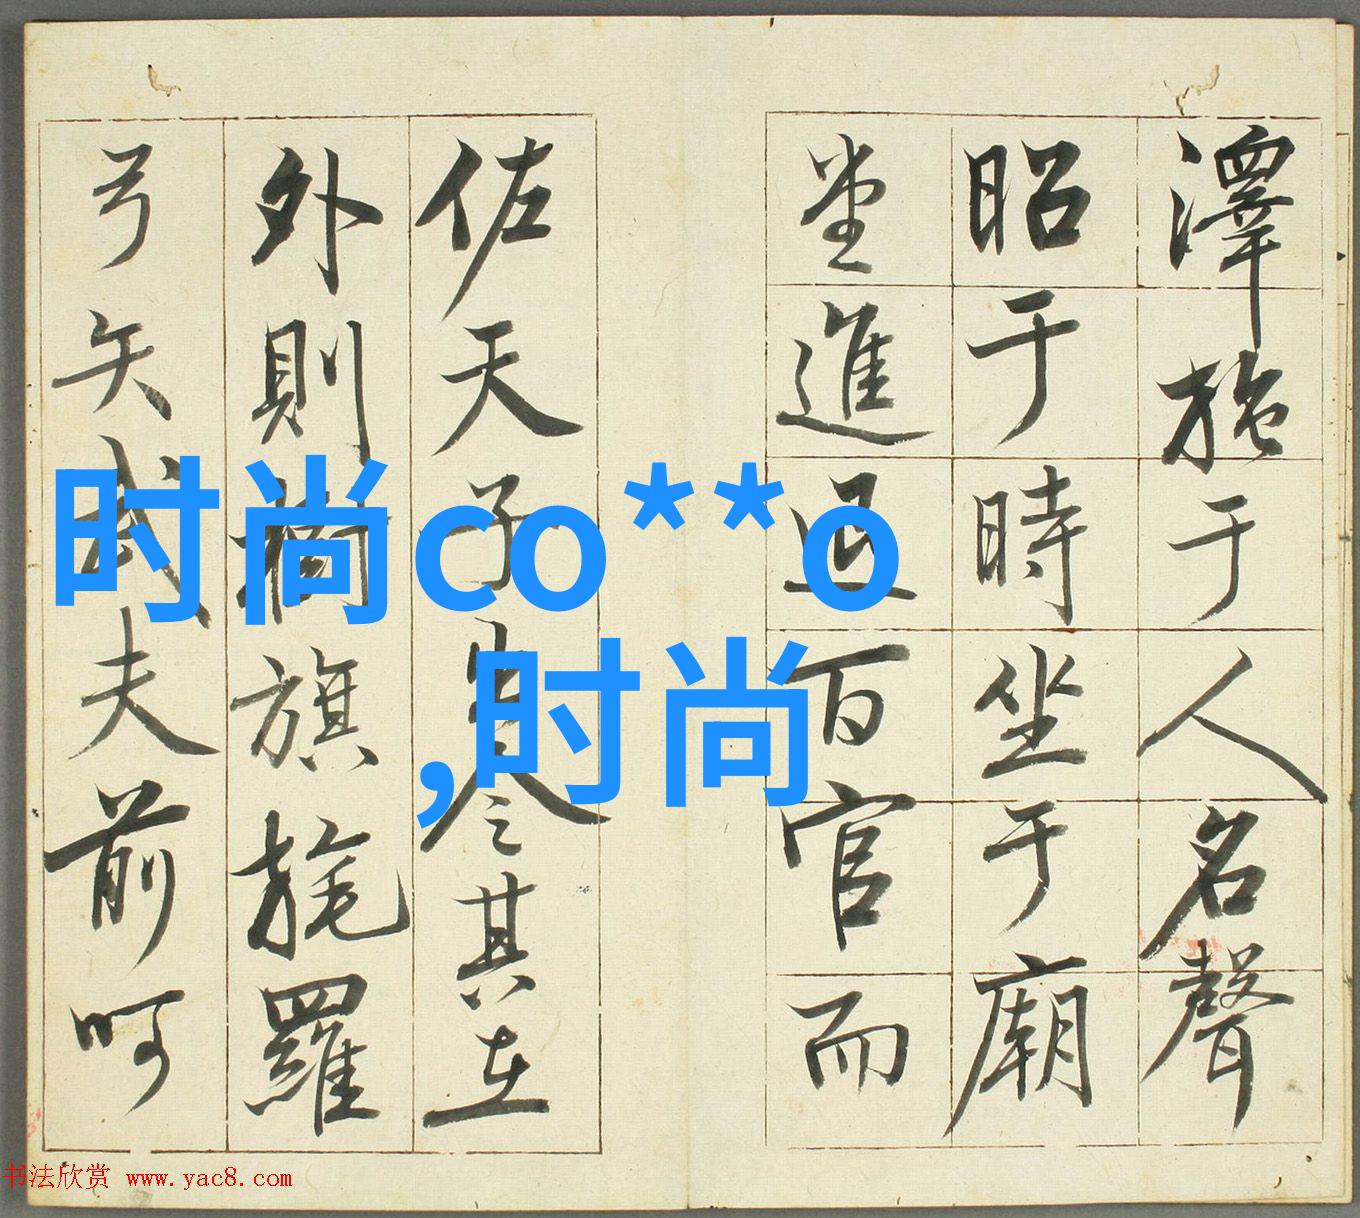 澤施于人名聲
昭于時坐于廟
堂進退百官而
佐天子出令其在
外則樹旗旄羅
弓矢武夫前呵
时尚co**o
,时尚
书法欣赏 www.yac8.com